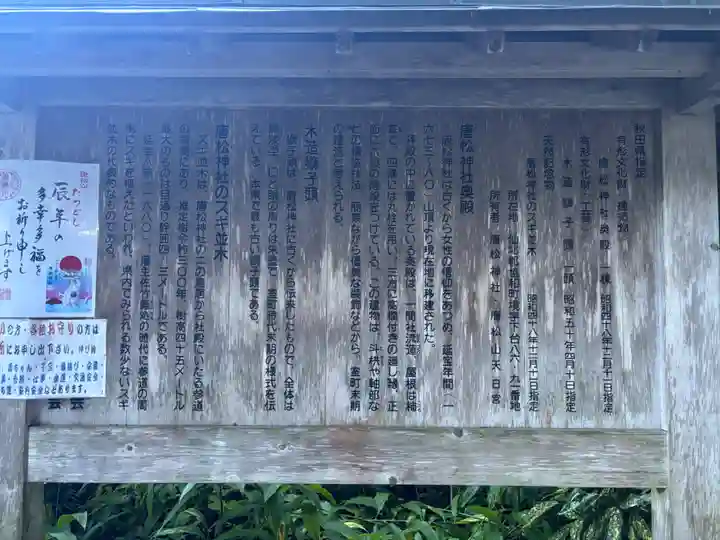 秋田県指定
有形文化財(建造物)
唐松神社奥殿 一棟 昭和四十八年十二月十一日指定
有形文化財(工芸)
木造獅子頭 一頭 昭和五十年四月十日指定
天然記念物
唐松神社のスギ並木 昭和四十八年十二月十一日指定
所在地 仙北郡協和町境字下台八六・九一番地
所有者 唐松神社・唐松山天日宮
唐松神社奥殿
唐松神社は古くから女性の信仰をあつめ、延宝年間(一
六七三〜八〇)山頂より現在地に移建された。
神殿の中に置かれている奥殿は、一間社流造、屋根は柿
葺で、四隅には丸柱を用い、三方に高欄付きの廻し縁、正
面に の階段をつけている。この建物は、斗栱や軸部な
どの 技法、簡素ながら優美な装飾などから、室町末期
の建造と考えられる。
木造獅子頭
獅子頭は、唐松神社に古くから伝来したもので、全体は
黒漆塗、 と眼の周りは朱塗で、室町時代末期の様式を伝
えている。本県で最も古い獅子頭である。
唐松神社のスギ並木
スギ並木は、唐松神社の一の鳥居から社殿にいたる参道
の両側にあり、推定樹令約三〇〇年、樹高四十五メートル
最大のものは目通り幹囲四・三メートルである。
延宝八年(一六八〇)、藩主佐竹義処の時代に参道の両
側にスギを植えたといわれ、県内でみられる数少ないスギ
並木の代表的なものである。
たつどし
辰年の
多幸多福を
お祈り申し
上げます
の方・各種お守りの方は
にお申し出下さい。